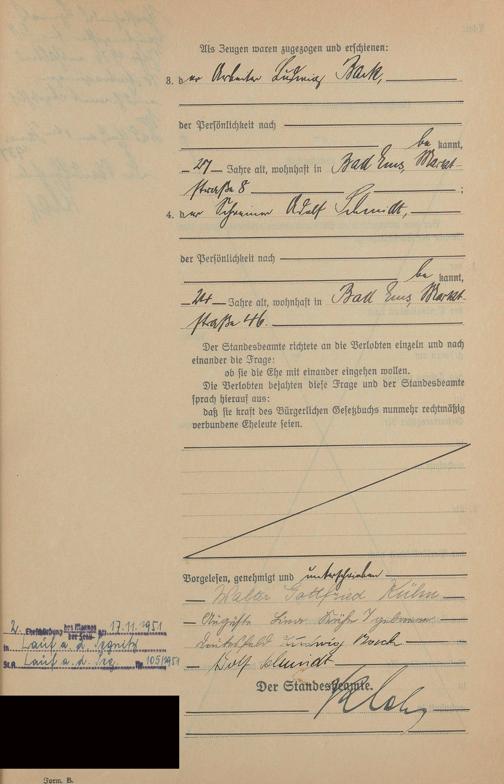 Als Zeugen waren zugezogen und erschienen:
3. der Arbeiter Ludwig Back,
der Persönlichkeit nach
bekannt,
27 Jahre alt, wohnhaft in Bad Ems, Markt-
straße 8 ;
4. der Schreiner Adolf Schmidt,
der Persönlichkeit nach
bekannt,
24 Jahre alt, wohnhaft in Bad Ems, Markt-
straße 46.
Der Standesbeamte richtete an die Verlobten einzeln und nach
einander die Frage:
ob sie die Ehe mit einander eingehen wollen.
Die Verlobten bejahten diese Frage und der Standesbeamte
sprach hierauf aus:
daß sie kraft des Bürgerlichen Gesetzbuchs nunmehr rechtmäßig
verbundene Eheleute seien.
Vorgelesen, genehmigt und unterschrieben
Walter Gottfried Kühn
Auguste geborene
Ludwig Back
Adolf Schmidt
Der Standesbeamte.
2. Eheschließung des Mannes am 17.11.1951
der Frau
in Lauf a. d. Pegnitz
St.A. Lauf a. d. Peg. Nr. 105/1951
Form. B.